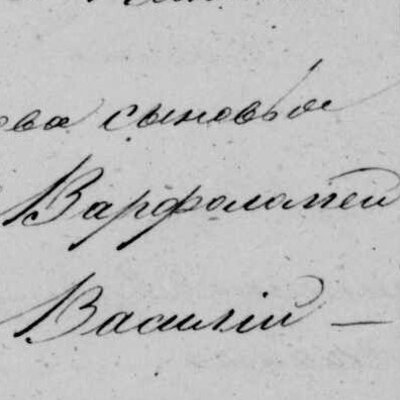 ева сыновья
Варфоломей
Василій —